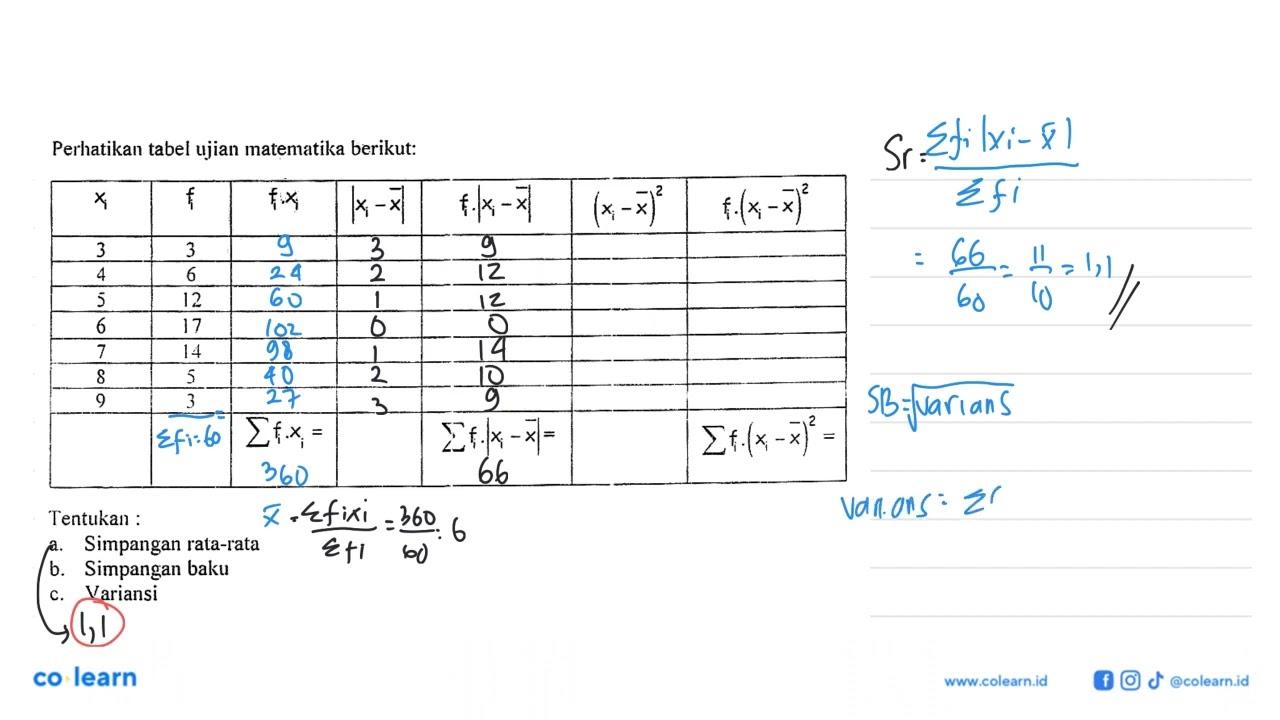 Perhatikan tabel ujian matematika berikut:
xᵢ fᵢ fᵢ.xᵢ |xᵢ − x̄| fᵢ.|xᵢ − x̄| (xᵢ − x̄)² fᵢ.(xᵢ − x̄)²
3 3 9 3 9
4 6 24 2 12
5 12 60 1 12
6 17 102 0 0
7 14 98 1 14
8 5 40 2 10
9 3 27 3 9
Σfi = 60 ∑fᵢ.xᵢ = 360 ∑fᵢ.|xᵢ − x̄| = 66 ∑fᵢ.(xᵢ − x̄)² =
Tentukan :
a. Simpangan rata-rata
b. Simpangan baku
c. Variansi
1,1
x̄ = Σfixi / Σfi = 360 / 60 = 6
Sr = Σfi |xi − x̄| / Σfi
= 66 / 60 = 11 / 10 = 1,1 //
SB = √varians
Varians = Σ
co learn
www.colearn.id
@colearn.id